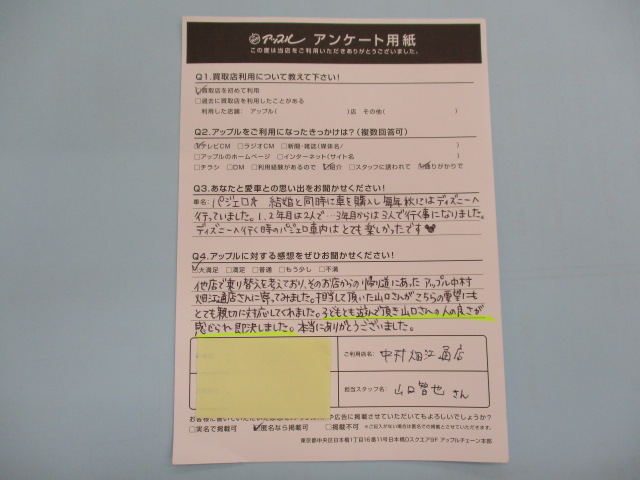 アップル アンケート用紙
この度は当店をご利用いただきありがとうございました。
Q1.買取店利用について教えて下さい!
買取店を初めて利用
□過去に買取店を利用したことがある
利用した店舗: アップル( )店 その他( )
Q2.アップルをご利用になったきっかけは?(複数回答可)
テレビCM □ラジオCM □新聞・雑誌(媒体名/ )
□アップルのホームページ □インターネット(サイト名 )
□チラシ □DM □利用経験があるので 紹介 □スタッフに誘われて 通りがかりで
Q3.あなたと愛車との思い出をお聞かせください!
車名: パジェロio 結婚と同時に車を購入し毎年秋にはディズニーへ
行っていました。1、2年目は2人で…3年目からは3人で行く事になりました。
ディズニーへ行く時のパジェロ車内はとても楽しかったです
Q4.アップルに対する感想をぜひお聞かせください!
大満足 □満足 □普通 □もう少し □不満
他店で乗り替えを考えており、そのお店からの帰り道にあったアップル中村
畑江通店さんに寄ってみました。担当して頂いた山口さんがこちらの要望にも
とても親切に対応してくれました。子どもとも遊んで頂き山口さんの人の良さが
感じられ即決しました。本当にありがとうございました。
ご利用店名: 中村畑江通店
担当スタッフ名: 山口智也 さん
お客様に書いていただいた や広告に掲載させていただいてもよろしいでしょうか?
□実名で掲載可 匿名なら掲載可 □掲載不可 ※ご記入がない場合は匿名での掲載とさせていただきます。
東京都中央区日本橋1丁目16番11号日本橋Dスクエア9F アップルチェーン本部